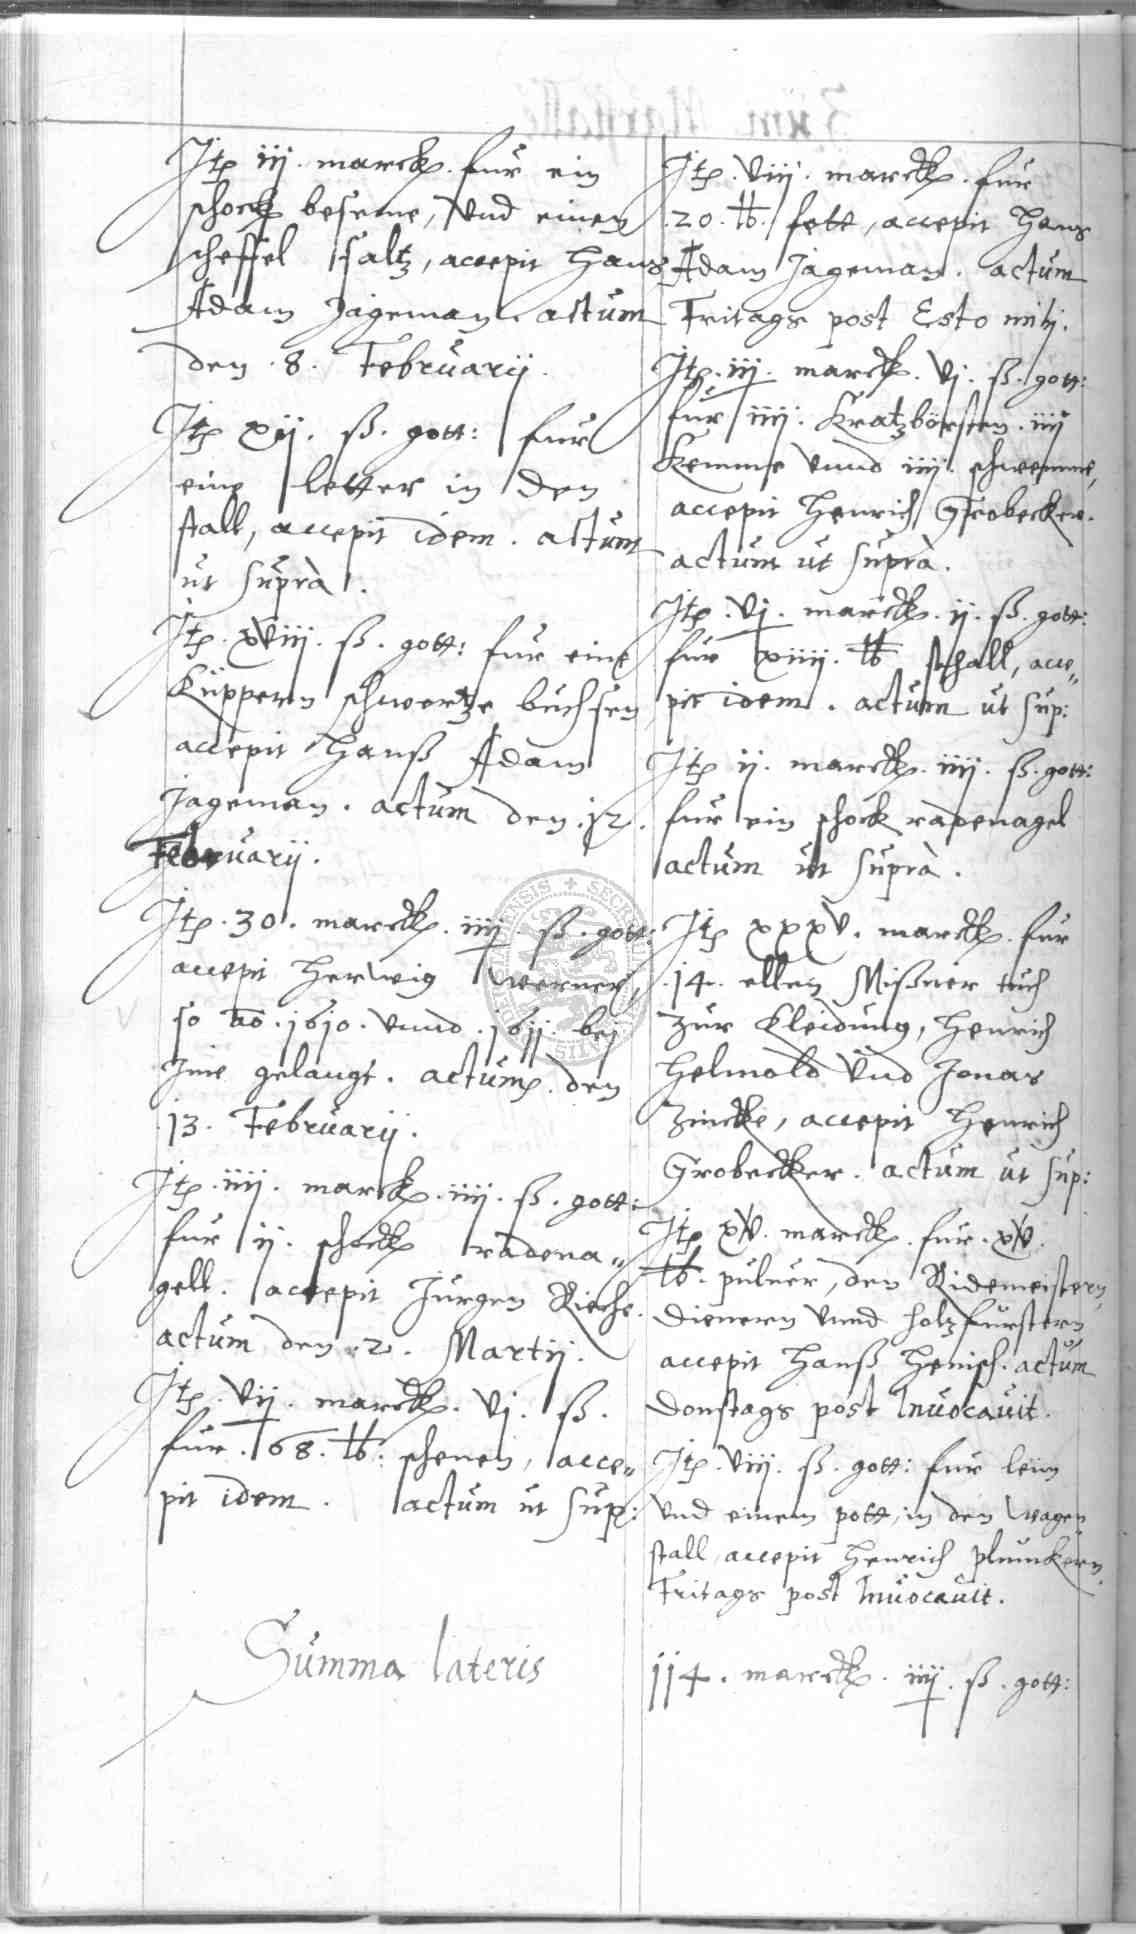 Itp iij. marck. fur ein
schock beseme, vnd einen
scheffel saltz, accepit Hans
Adam Jageman. actum
den .8. Februarij.
Itp xij. ß. gott: fur
eine letter in den
stall, accepit idem. actum
ut suprà.
Itp. xviij. ß. gott: fur eine
Küppern schwertze buchsen
accepit Hanß Adam
Jageman. actum den .12.
Februarij.
Itp. 30. marck. iiij. ß. gott:
accepit Herwig Werner,
so ao. 1610. vnnd .1611. bej
Jme gelangt. actum. den
13. Februarij.
Itp. iiij. marck. iiij. ß. gott:
fur ij. schock radena„
gell. accepit Jurgen Rieche.
actum den .2. Martij.
Itp. vij. marck. vj. ß.
fur .168. lb: schenen, acce„
pit idem. actum ut sup:
Itp. viij. marck. fur
.20. lb. fett, accepit Hans
Adam Jageman. actum
Fritags post Esto mihj.
Itp. iij. marck. vj. ß. gott:
fur iiij. Kratzbörsten. iiij
Kemme vnnd iiij. schwemme,
accepit Henrich Grobecker.
actum ut suprà.
Itp. vj. marck. ij. ß. gott:
fur xiiij. lb sthall, acce„
pit idem. actum ut sup:
Itp ij. marck. iiij. ß. gott:
fur ein schock radenagel
actum ut suprà.
Itp xxxv. marck. fur
.14. ellen Mißner tuch
zur Kleidung, Henrich
Helmold vnd Jonas
Zincke, accepit Henrich
Grobecker. actum ut sup:
Itp xv. marck. fur. xv.
lb. puluer, den Ridemeistern,
dienern vnnd holtzfurstern
accepit Hanß Henisch. actum
Donstags post Inuocauit.
Itp. viij. ß. gott: fur leim
vnd einem pott, in den wagen
stall, accepit Henrich Plunkern.
Fritags post Inuocauit.
Summa lateris
114. marck. iiij. ß. gott: